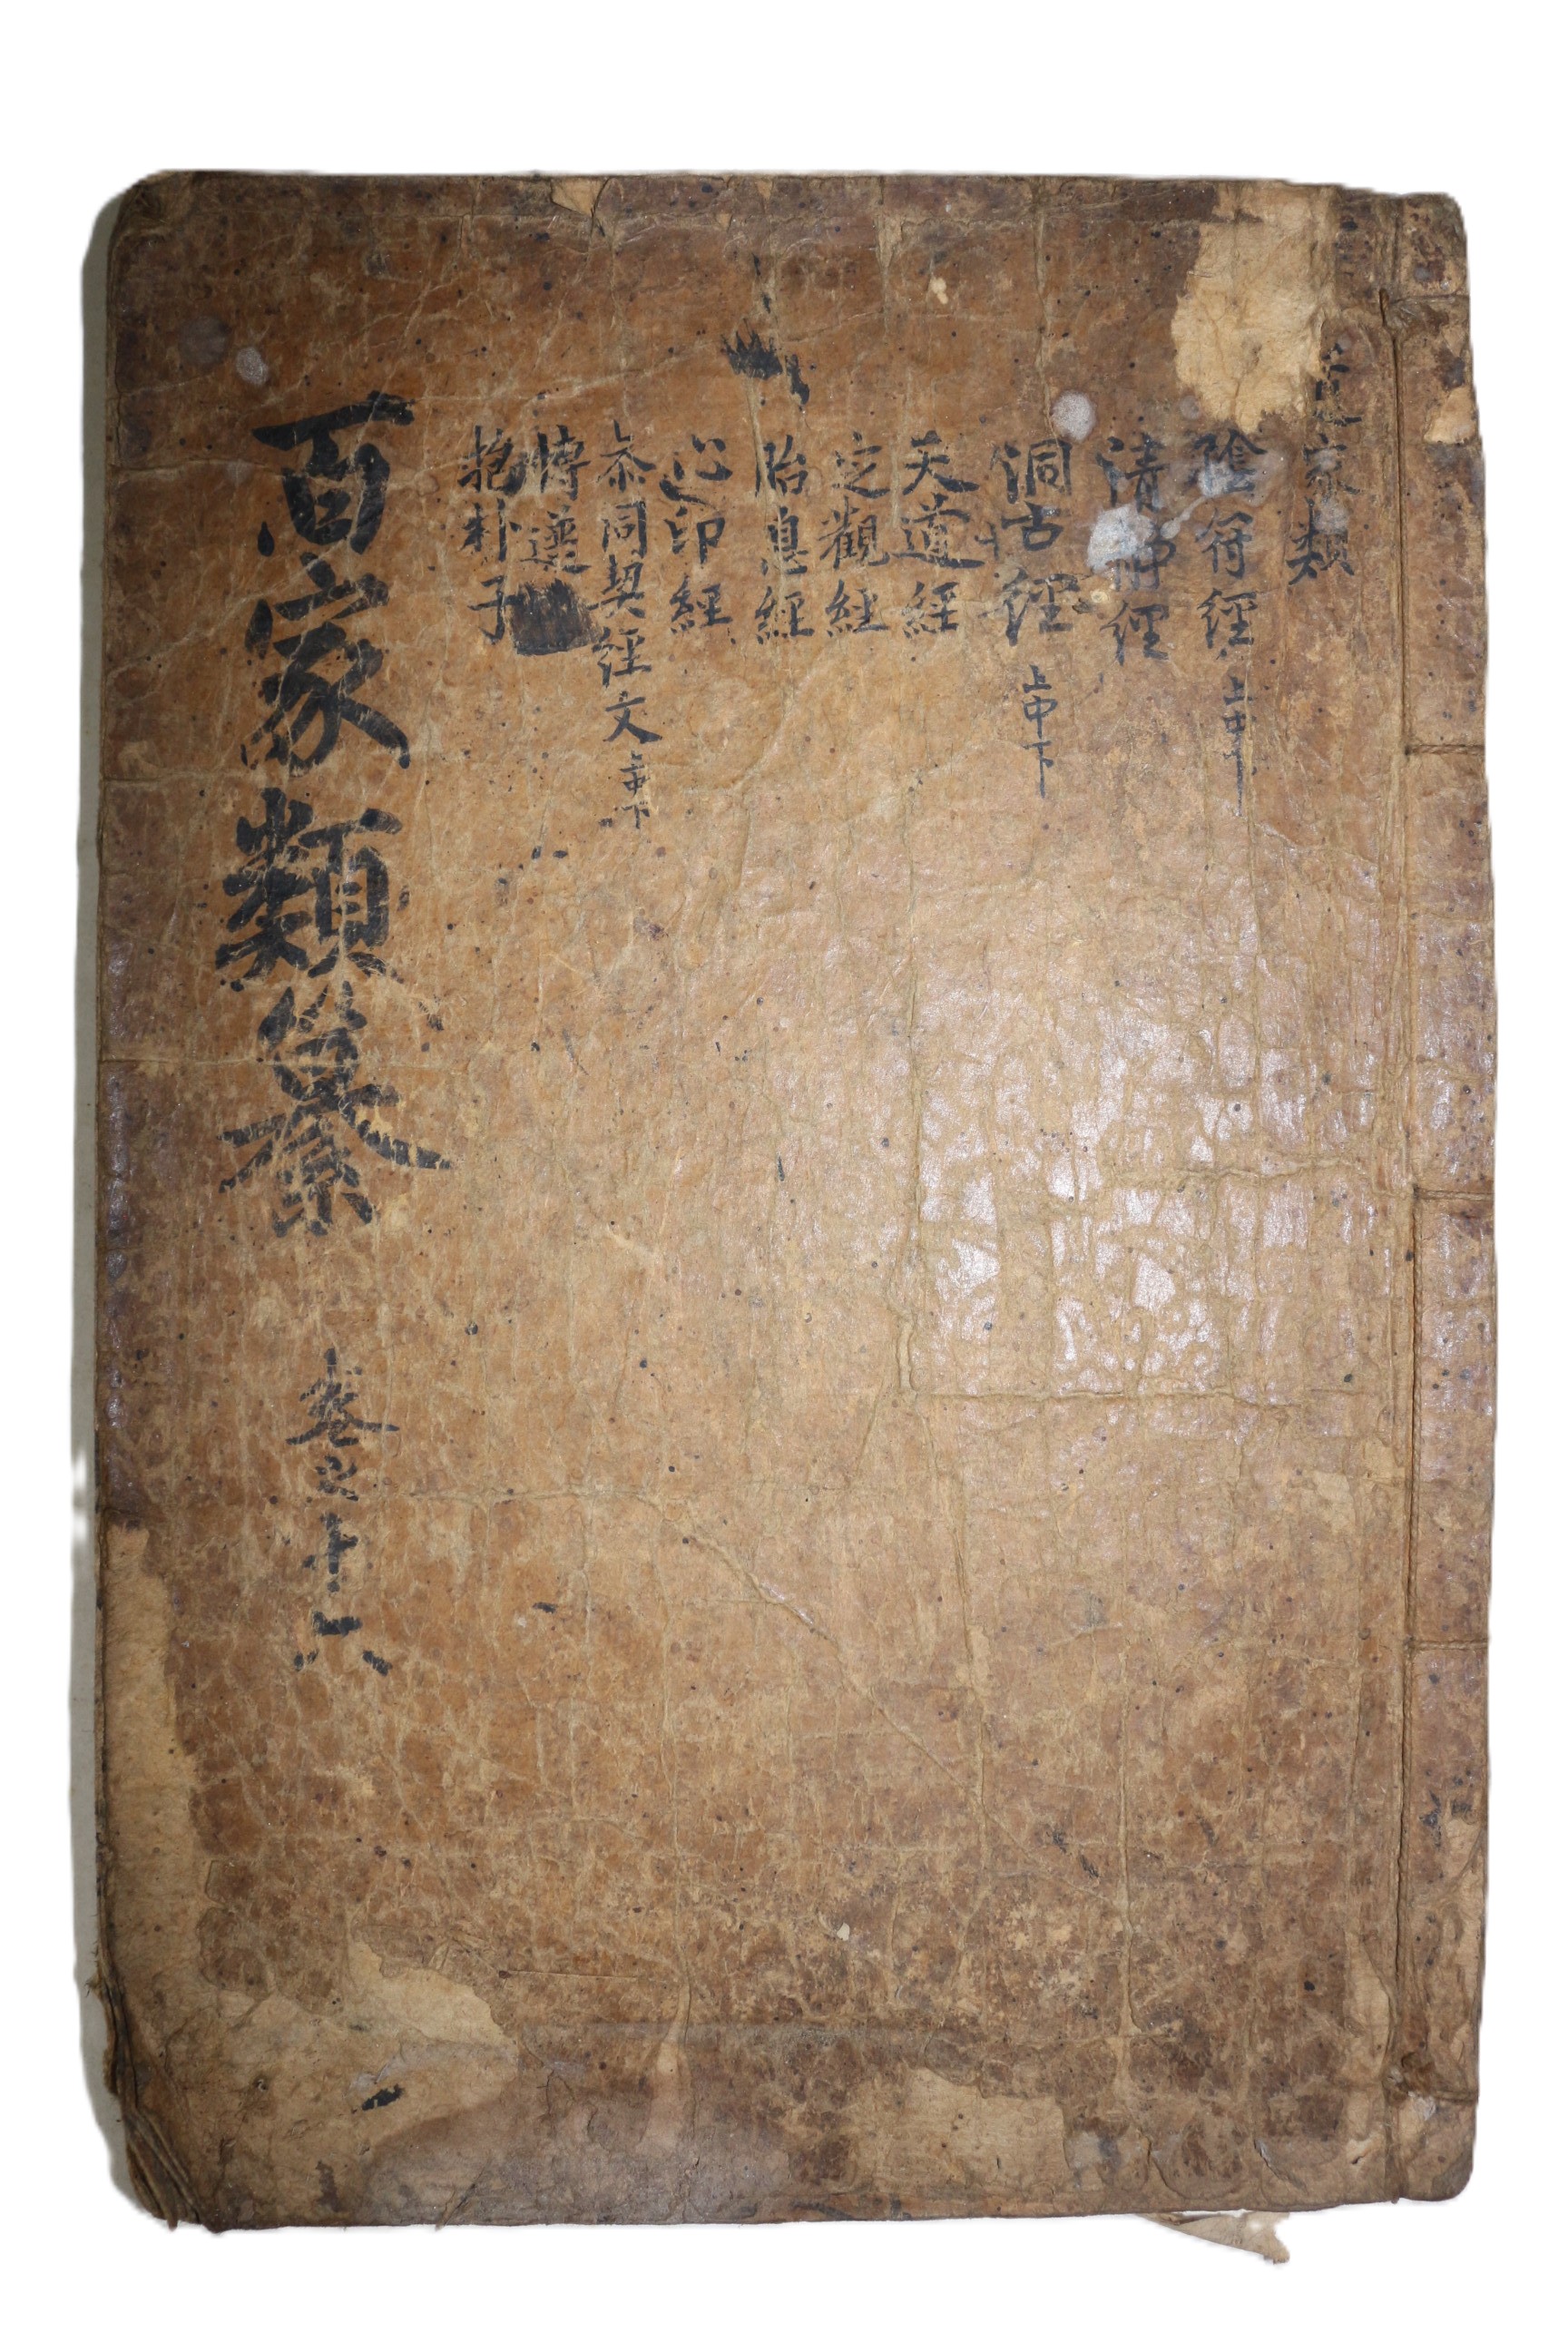 道家類
陰符經 上中下
清靜經
洞古經 上中下
天道經
定觀經
胎息經
心印經
叅同契經文 上中下
抱朴子
百家類纂 卷之十六